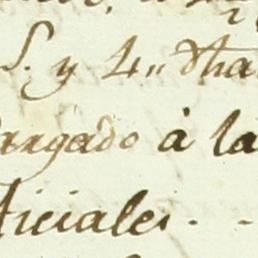 S. y 4,, tha
argado à la
ficiales. -